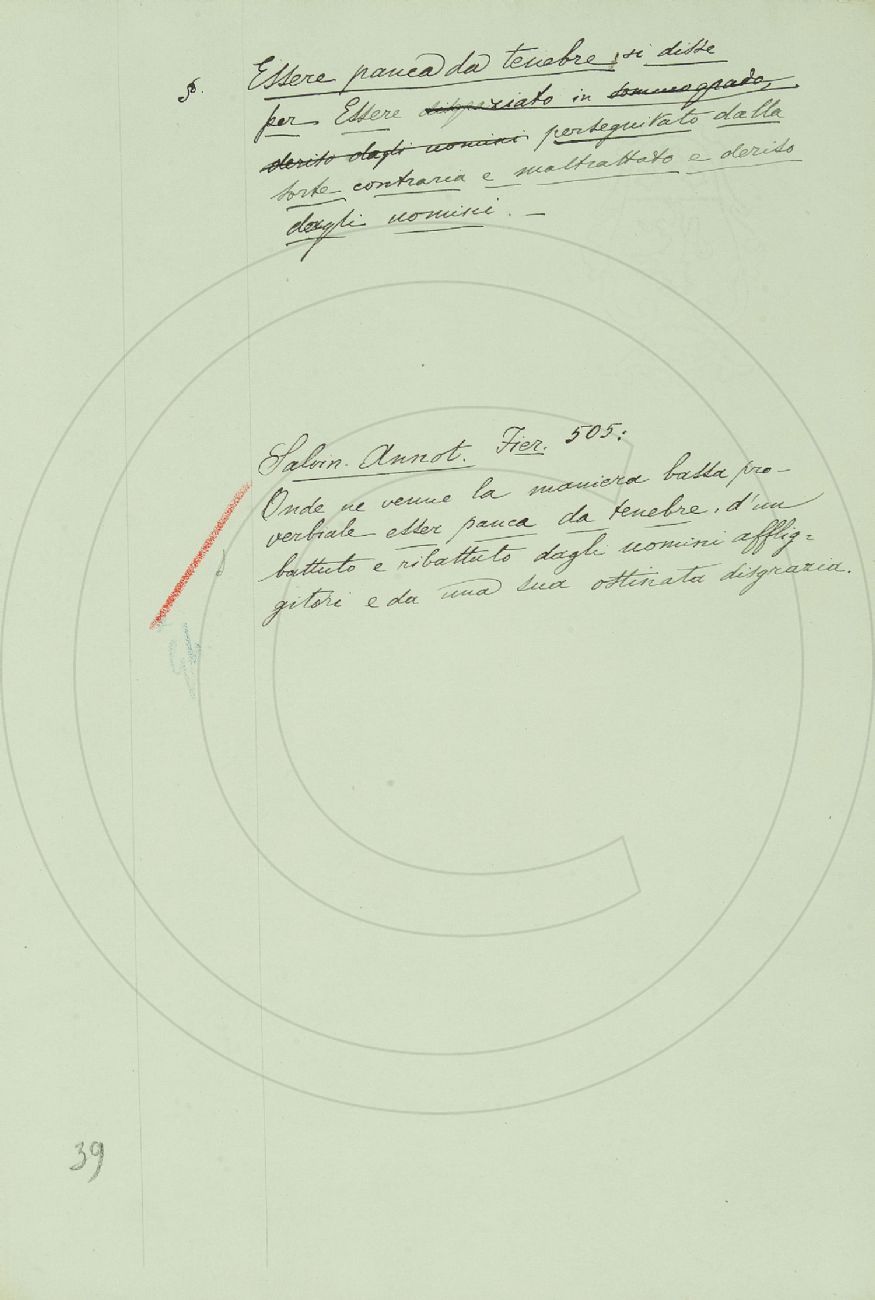 §. Essere panca da tenebre, si disse
per Essere disgraziato in sommo grado,
deriso dagli uomini perseguitato dalla
sorte contraria e maltrattato e deriso
dagli uomini. –
Salvin. Annot. Fier. 505:
Onde ne venne la maniera bassa pro-
verbiale esser panca da tenebre, d'un
battuto e ribattuto dagli uomini afflig=
gitori e da una sua ostinata disgrazia.
39